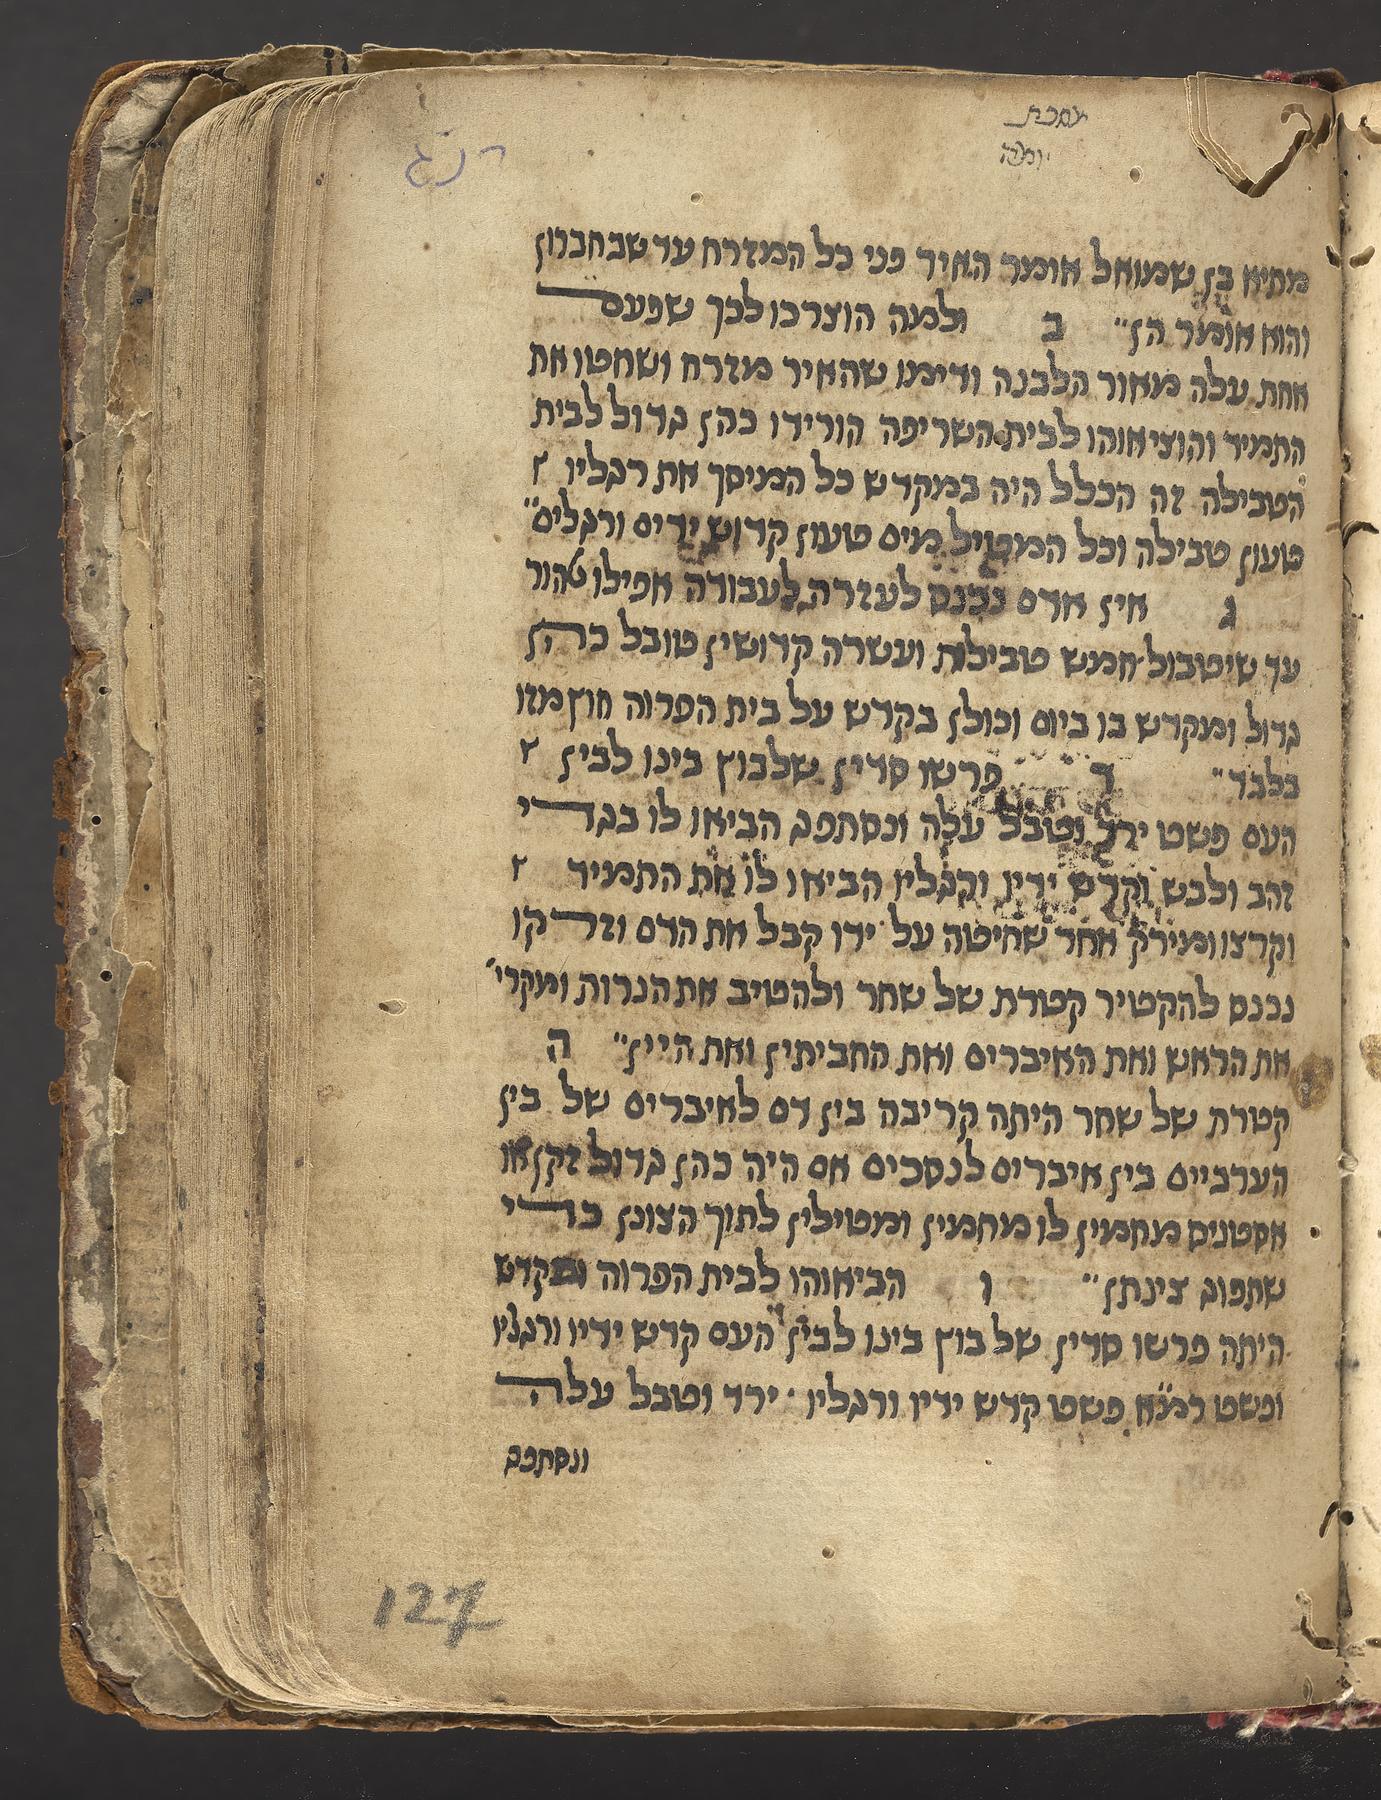 מסכת
יומא
רנג
מתיא בן שמואל אומר האיר פני כל המזרח עד שבחברון
והוא אומר הין ב ולמה הוצרכו לכך שפעם
אחת עלה מאור הלבנה ודימו שהאיר מזרח ושחטו את
התמיד והוציאוהו לבית השריפה הורידו כהן גדול לבית
הטבילה זה הכלל היה במקדש כל המיסך את רגליו
טעון טבילה וכל המטיל מים טעון קדוש ידים ורגלים
ג אין אדם נכנס לעזרה לעבודה אפילו טהור
עד שיטבול חמש טבילות ועשרה קדושין טובל כהן
גדול ומקדש בו ביום וכולן בקדש על בית הפרוה חוץ מזו
בלבד ד פרשו סדין שלבוץ בינו לבין
העם פשט ירד וטבל עלה ונסתפג הביאו לו בגדי
זהב ולבש וקדש ידיו ורגליו הביאו לו את התמיד
וקרצו ומירק אחר שחיטה על ידו קבל את הדם וזרקו
נכנס להקטיר קטרת של שחר ולהטיב את הנרות ומקרי׳
את הראש ואת האיברים ואת החביתין ואת היין ה
קטרת של שחר היתה קריבה בין דם לאיברים של בין
הערביים בין איברים לנסכים אם היה כהן גדול זקן או
אסטניס מחמין לו מחמין ומטילין לתוך הצונן כדי
שתפוג צינתן ו הביאוהו לבית הפרוה ובקדש
היתה פרשו סדין של בוץ בינו לבין העם קדש ידיו ורגליו
ופשט רמ״א פשט קדש ידיו ורגליו ירד וטבל עלה
ונסתפג
127